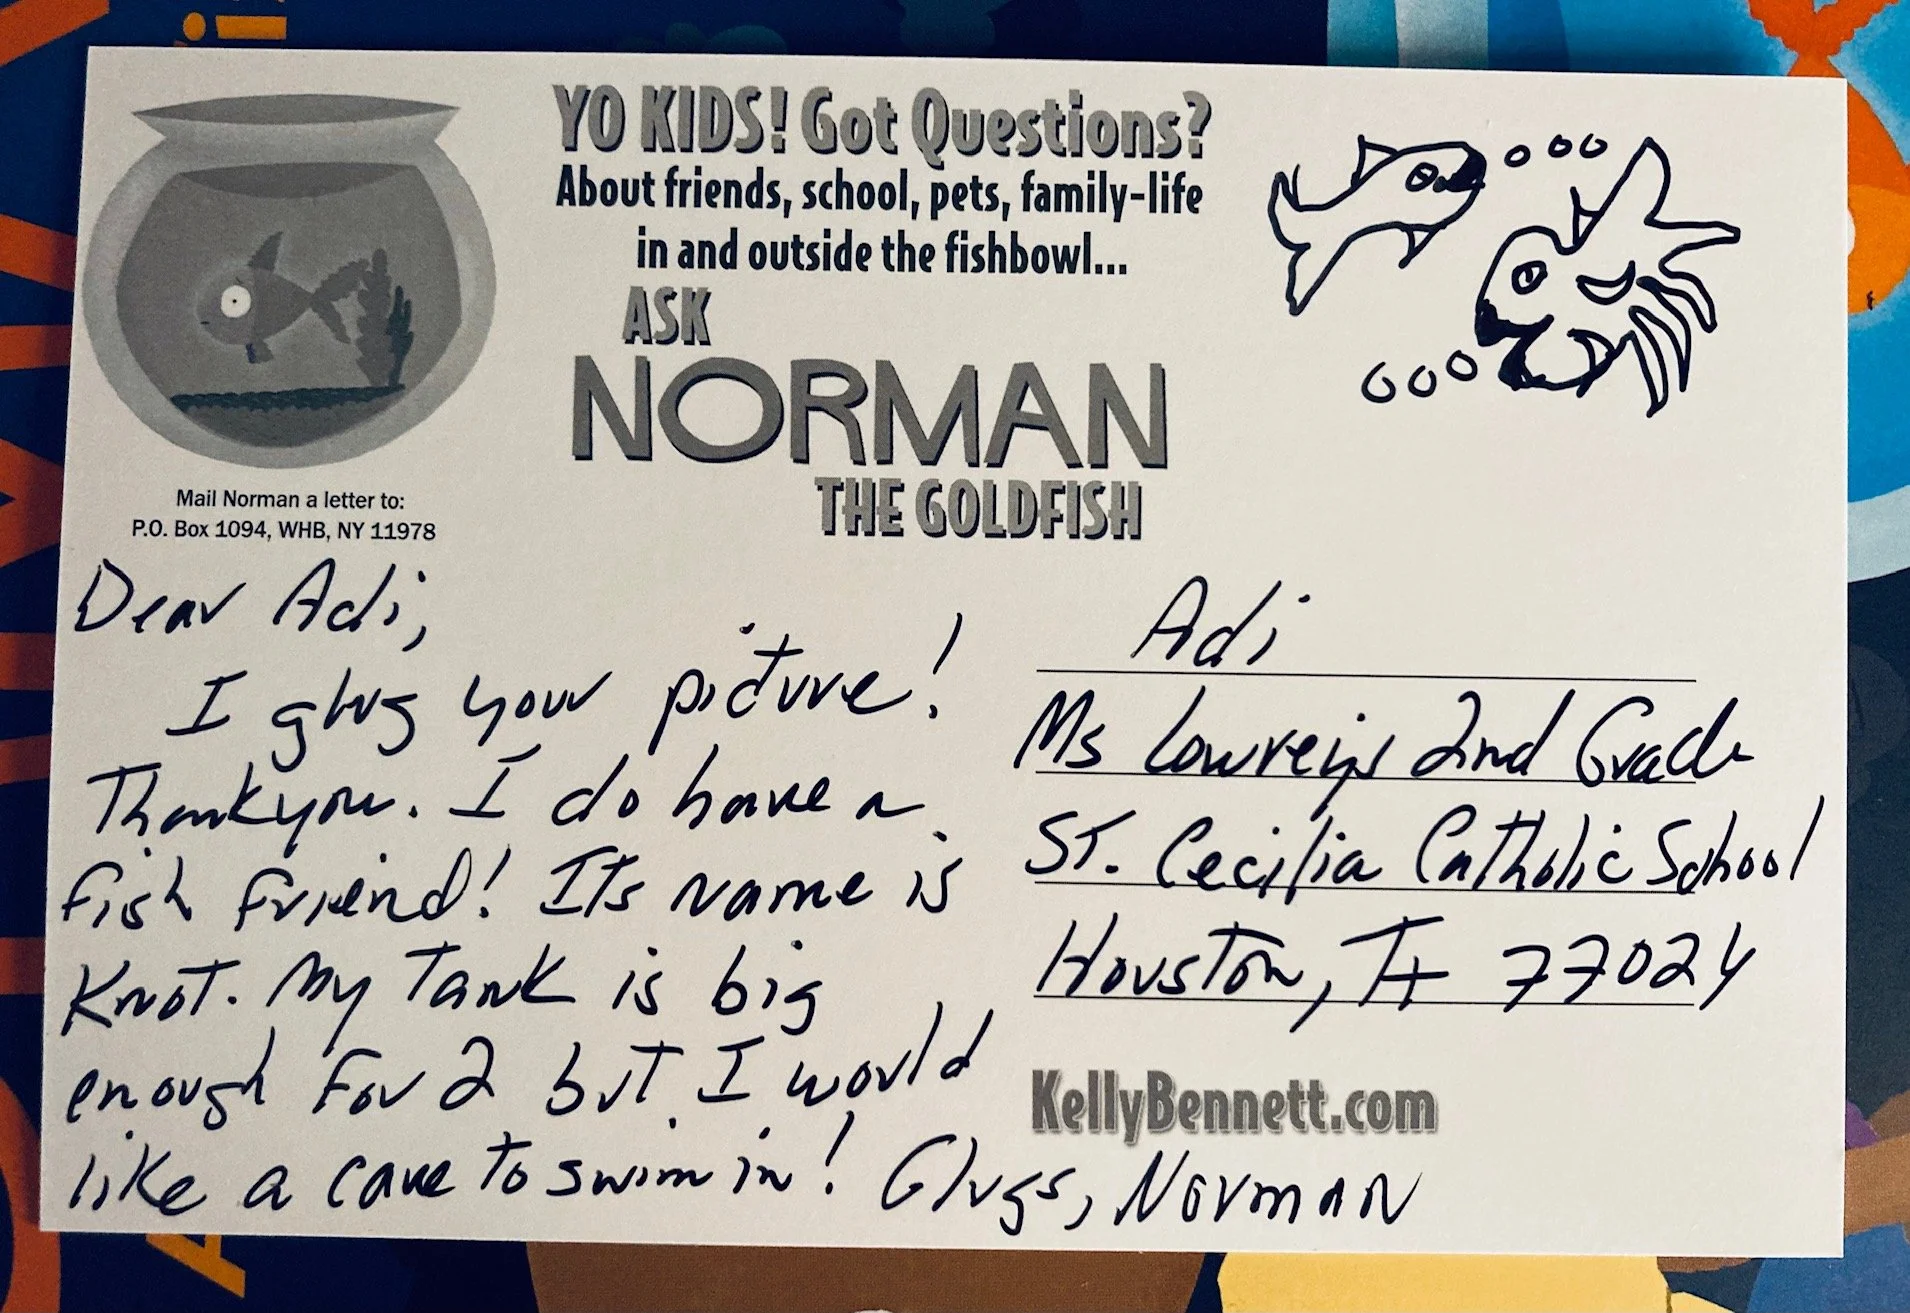 YO KIDS! Got Questions?
About friends, school, pets, family-life
in and outside the fishbowl...
ASK
NORMAN
THE GOLDFISH
Mail Norman a letter to:
P.O. Box 1094, WHB, NY 11978
Dear Adi,
I glug your picture!
Thank you. I do have a
fish friend! Its name is
Knot. My Tank is big
enough for 2 but I would
like a cave to swim in! Glugs, Norman
Adi
Ms Lowreys 2nd Grade
ST. Cecilia Catholic School
Houston, TX 77024
KellyBennett.com